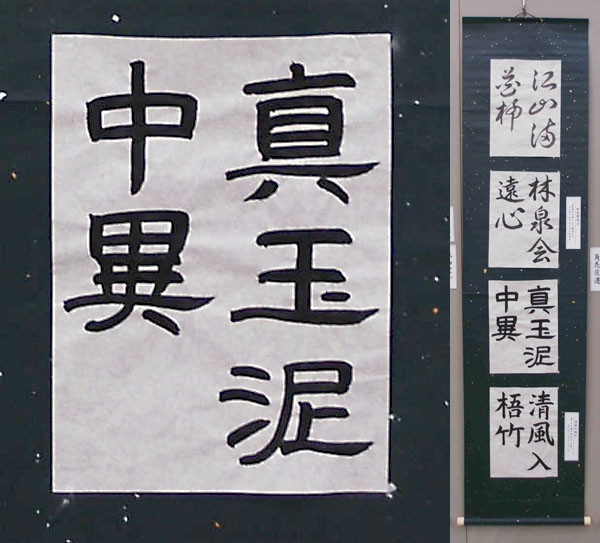 真玉泥
中異
江山満
花
林泉会
遠心
真玉泥
中異
清風入
梧竹